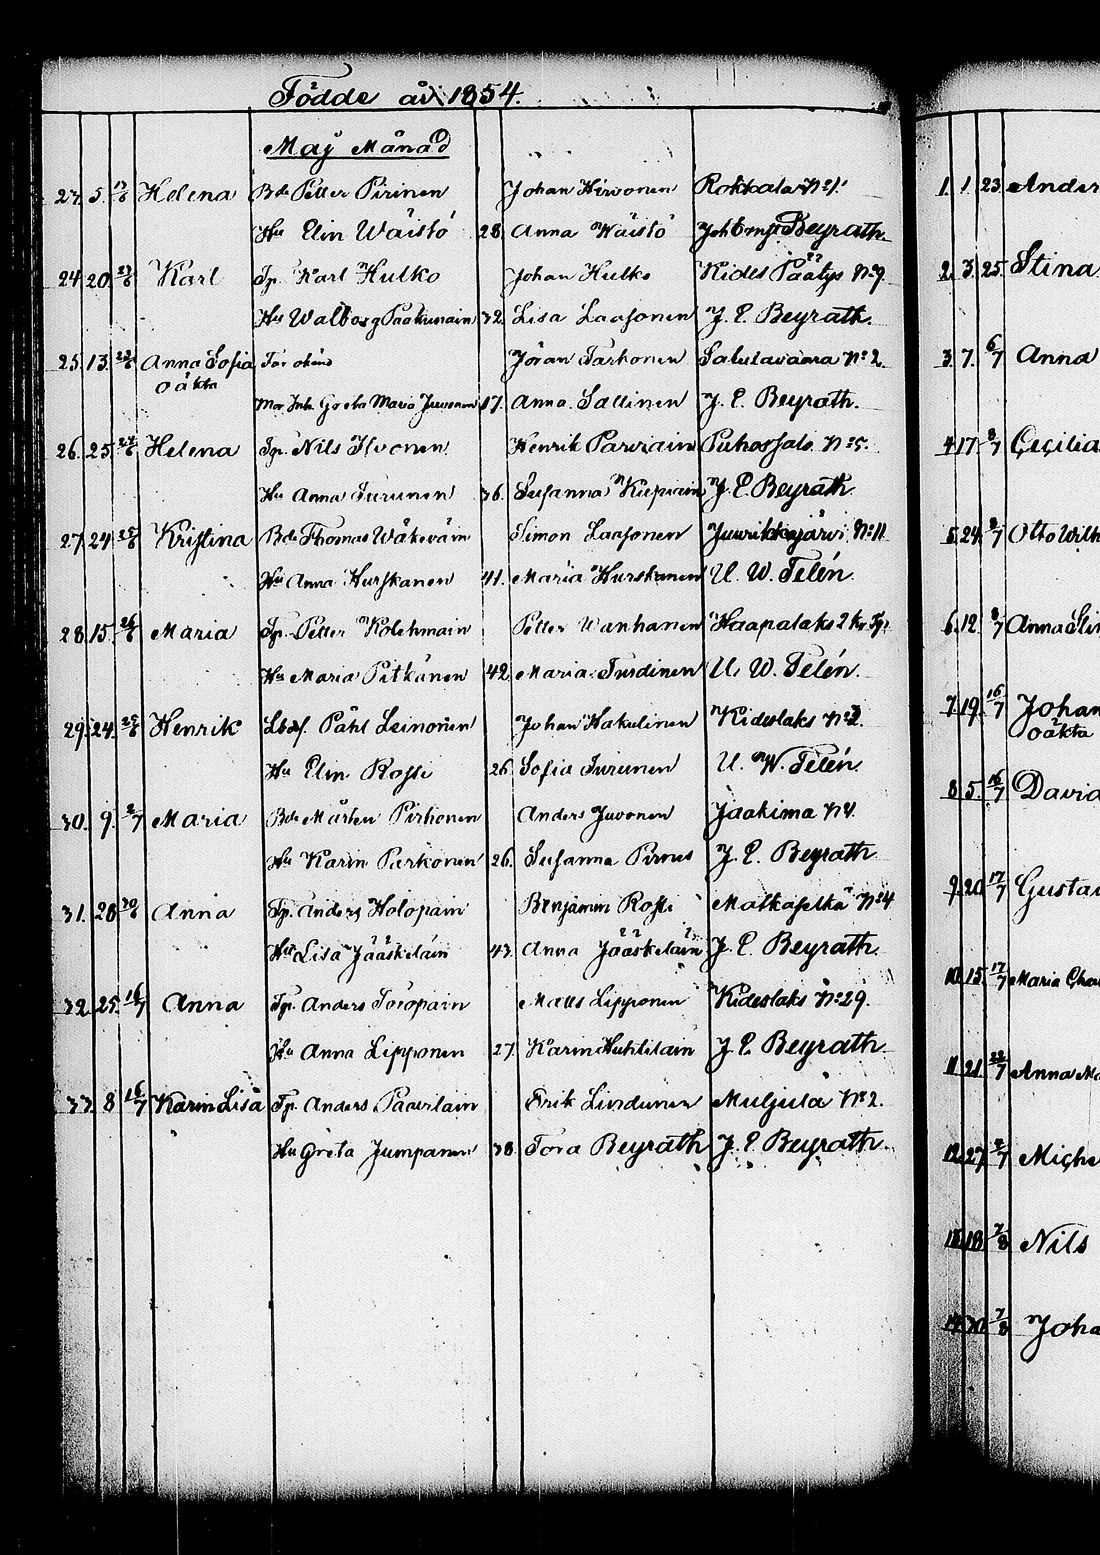 Födde år 1854.
Maj Månad
23. 5. 13/6 Helena Bde Petter Pirinen Johan Hirvonen Rokkala N:1.
Hu Elin Wäistö 28 Anna Wäistö Joh Ernst Beyrath
24 20 /6 Karl Tp. Karl Hulko Johan Hulko Kides Päätys N:9
Hu Walborg Paakunain 32. Lisa Laasonen J. E. Beyrath.
25. 13. /6 Anna Sofia Far okänd Jöran Tarhonen Salutavaara N:2.
oäkta
Mor Inh. Greta Maria Juvonen 17. Anna Sallinen J. E. Beyrath.
26. 25 /6 Helena Tp. Nils Ilvonen Henrik Parviain Puhossalo N:5.
Hu Anna Turunen 36. Susanna Kiepiain J. E. Beyrath
27 24 25/6 Kristina Bde Thomas Wäkeväin Simon Laasonen Juurikkajärvi N:11
Hu Anna Hurskanen 41. Maria Hurskanen U. W. Telén.
28 15. 26/6 Maria Tp. Petter Kolehmain Petter Wanhanen Haapalaks 2 Kr Tp.
Hu Maria Pitkänen 42 Maria Turdinen U. W. Telén.
29. 24. 25/6 Henrik Lbdf. Påhl Leinonen Johan Hakulinen Kideslaks N:2.
Hu Elin Rossi 26 Sofia Turunen U. W. Telén.
30. 9. 2/7 Maria Bde Mårten Pirhonen Anders Juvonen Jaakima N4.
Hu Karin Parkonen 26. Susanna Pirnes J. E. Beyrath
31. 28 30/6 Anna Tp. Anders Holopain Benjamin Rossi Matkaselkä N:4
Hu Lisa Jääskeläin 43. Anna Jääskeläin J. E. Beyrath
32 25. 16/7 Anna Tp. Anders Toropain Matts Lipponen Kideslaks N:29.
Hu Anna Lipponen 27. Karin Huhtilain J. E. Beyrath
33 8 16/7 Karin Lisa Tp. Anders Paavilain Erik Lindunen Muljula N:2.
Hu Greta Jumpanen 38 Tova Beyrath J. E. Beyrath
1. 1. 23 Ander
2. 3. 25. Stina
3. 7. 6/7 Anna
4 17. 8/7 Cecilia
5. 24. 9/7 Otto Wilh
6. 12. 9/7 Anna Stin
7. 19. 16/7 Johan
oäkta
8 5. 16/7 David
9. 20 17/7 Gustav
10. 15. 17/7 Maria Char
11. 21. 22/7 Anna Ma
12. 27 2/7 Miche
13. 18. 7/8 Nils
14. 30. 7/8 Joha